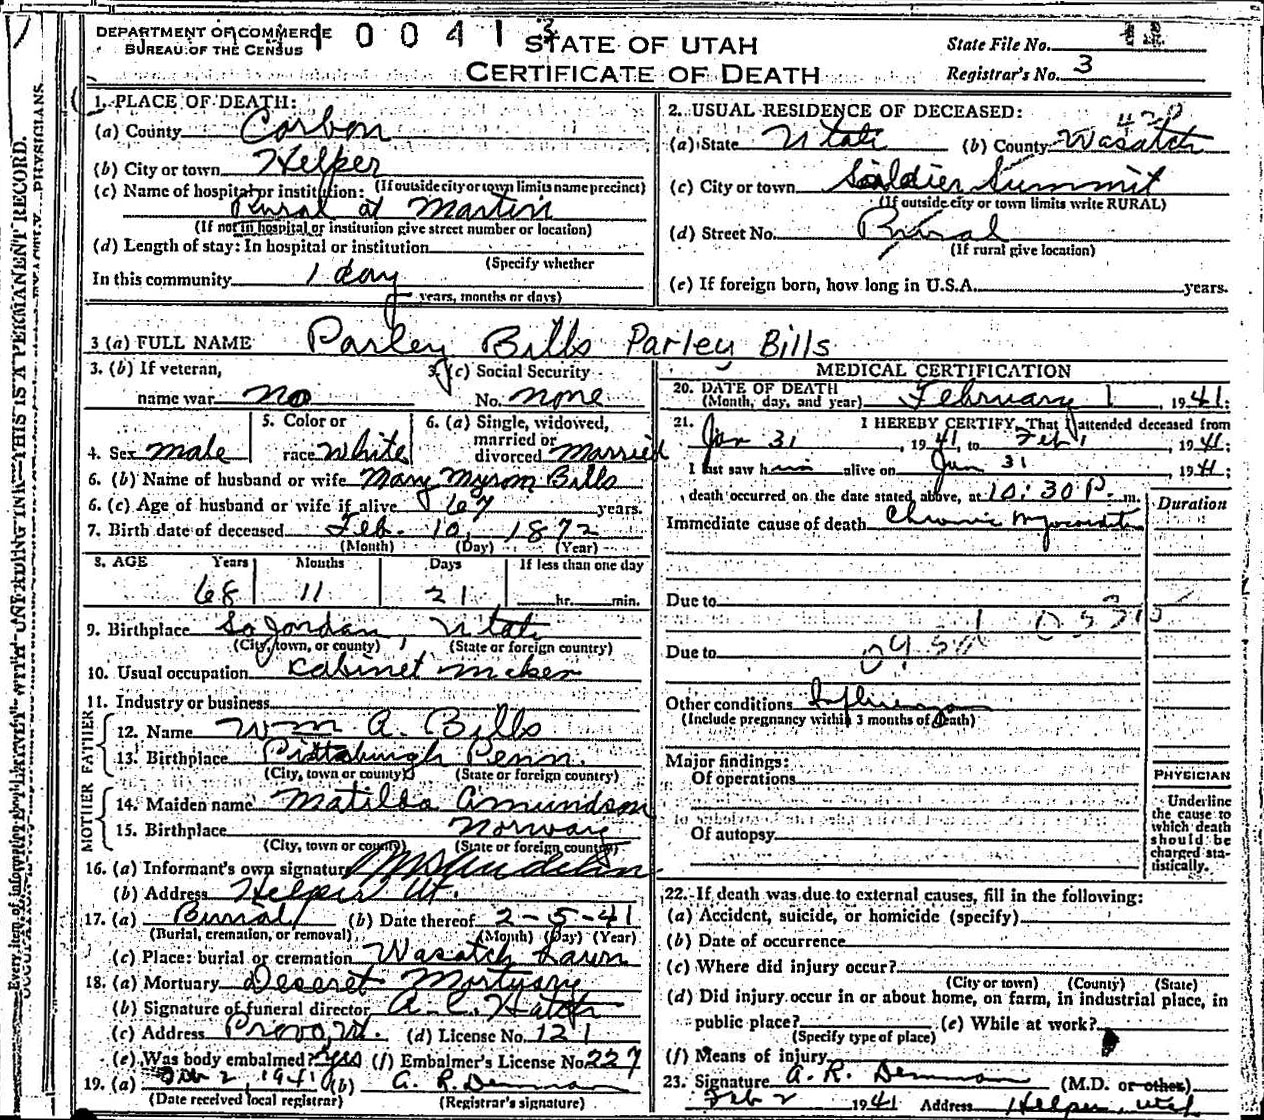 DEPARTMENT OF COMMERCE
BUREAU OF THE CENSUS
1 0 0 4 1 3
STATE OF UTAH
CERTIFICATE OF DEATH
State File No.
Registrar's No. 3
1. PLACE OF DEATH:
(a) County Carbon
(b) City or town Helper
(If outside city or town limits name precinct)
(c) Name of hospital or institution:
Rural at Martin
(If not in hospital or institution give street number or location)
(d) Length of stay: In hospital or institution
(Specify whether
In this community 1 day
years, months or days)
2. USUAL RESIDENCE OF DECEASED:
(a) State Utah (b) County Wasatch
(c) City or town Soldier Summit
(If outside city or town limits write RURAL)
(d) Street No. Rural
(If rural give location)
(e) If foreign born, how long in U.S.A. years.
3 (a) FULL NAME Parley Bills Parley Bills
3. (b) If veteran,
name war no
3. (c) Social Security
No. none
4. Sex male
5. Color or
race White
6. (a) Single, widowed,
married or
divorced Married
6. (b) Name of husband or wife Mary Myrom Bills
6. (c) Age of husband or wife if alive 67 years.
7. Birth date of deceased Feb. 10, 1872
(Month) (Day) (Year)
8. AGE Years Months Days If less than one day
68 11 21 hr. min.
9. Birthplace So Jordan, Utah
(City, town, or county) (State or foreign country)
10. Usual occupation Cabinet maker
11. Industry or business
FATHER
12. Name Wm A. Bills
13. Birthplace Pittsburgh Penn.
(City, town or county) (State or foreign country)
MOTHER
14. Maiden name Matilda Amundson
15. Birthplace Norway
(City, town or county) (State or foreign country)
16. (a) Informant's own signature
(b) Address Helper Ut.
17. (a) Burial (b) Date thereof 2-5-41
(Burial, cremation, or removal) (Month) (Day) (Year)
(c) Place: burial or cremation Wasatch Lawn
18. (a) Mortuary Deseret Mortuary
(b) Signature of funeral director A. C. Hatch
(c) Address Provo, Ut. (d) License No. 121
(e) Was body embalmed? Yes (f) Embalmer's License No. 227
19. (a) Feb 2, 1941 (b) A. R. Demman
(Date received local registrar) (Registrar's signature)
MEDICAL CERTIFICATION
20. DATE OF DEATH
(Month, day, and year) February 1, 1941;
21. I HEREBY CERTIFY, That I attended deceased from
Jan 31, 1941, to Feb 1, 1941;
I last saw him alive on Jan 31 1941;
death occurred on the date stated above, at 10:30 P. m.
Duration
Immediate cause of death Chronic Myocarditis
Due to
Due to
Other conditions Influenza
(Include pregnancy within 3 months of death)
Major findings:
Of operations
Of autopsy
PHYSICIAN
Underline
the cause to
which death
should be
charged sta-
tistically.
22. If death was due to external causes, fill in the following:
(a) Accident, suicide, or homicide (specify)
(b) Date of occurrence
(c) Where did injury occur?
(City or town) (County) (State)
(d) Did injury occur in or about home, on farm, in industrial place, in
public place? (e) While at work?
(Specify type of place)
(f) Means of injury
23. Signature A. R. Demman (M.D. or other)
Feb 2 1941 Address Helper, Utah
THIS IS A PERMANENT RECORD.
PHYSICIANS.